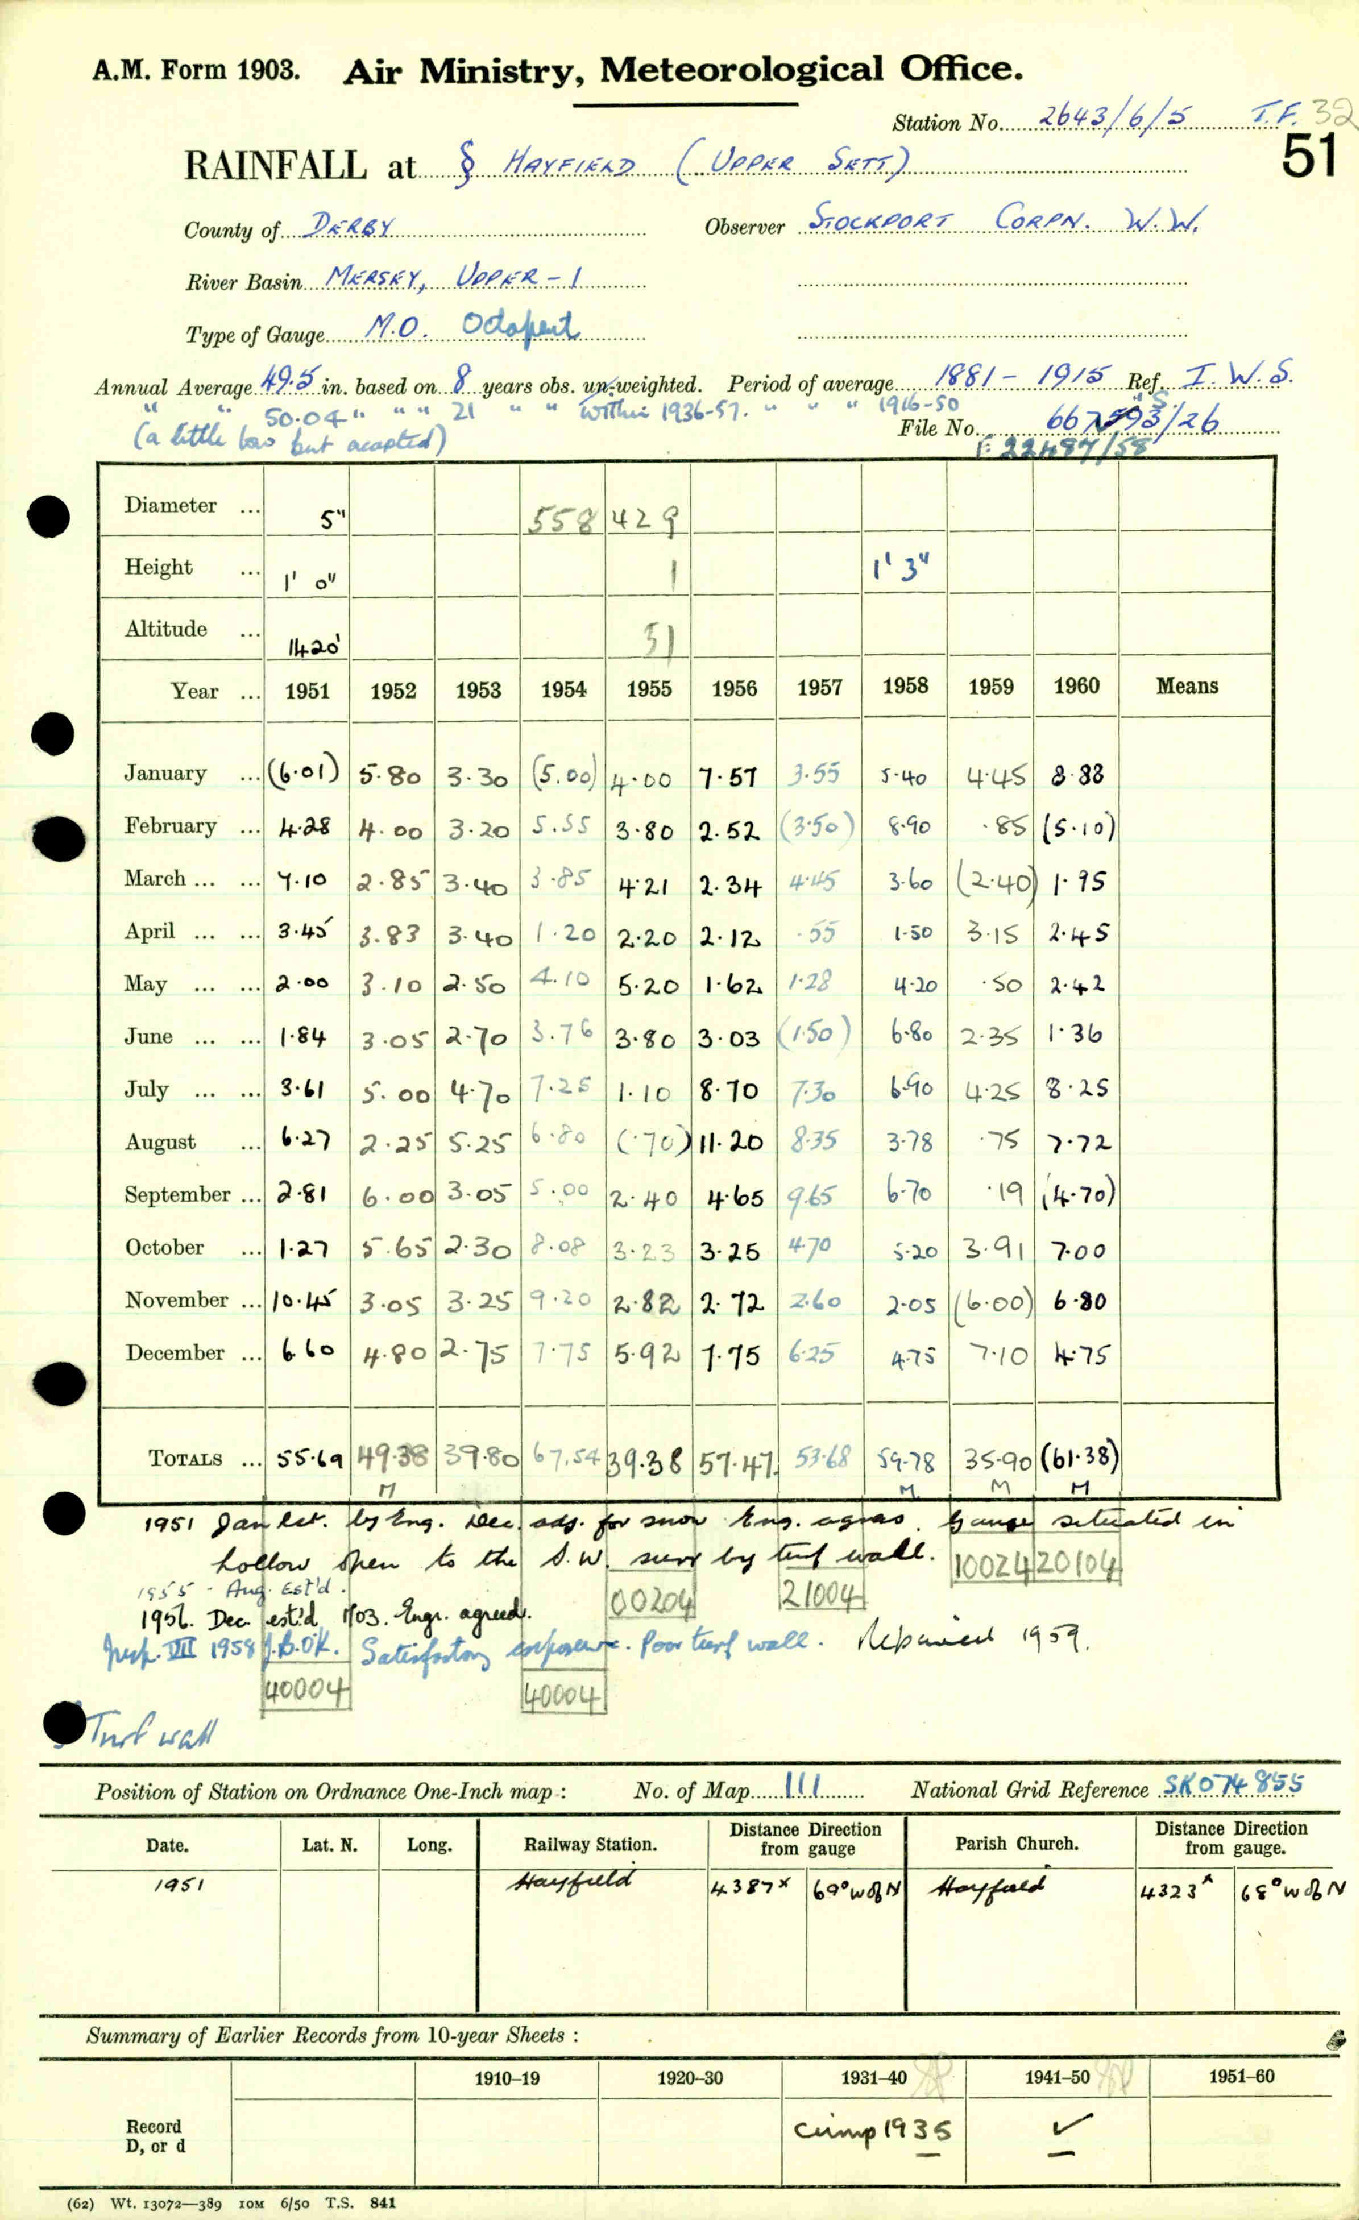 A.M. Form 1903. Air Ministry, Meteorological Office.
Station No. 2643/6/5 T.F. 32
51
RAINFALL at § HAYFIELD (UPPER SETT)
County of DERBY Observer STOCKPORT CORPN. W.W.
River Basin MERSEY, UPPER - 1
Type of Gauge M.O. Octapent
Annual Average 49.5 in. based on 8 years obs. un-weighted. Period of average 1881 - 1915 Ref. I.W.S.
" " 50.04 " " " 21 " " within 1936-57. " " " 1916-50 " S.
(a little low but accepted) File No. 667593/26
F. 22487/58
Diameter ... 5" 558 429
Height ... 1' 0" 1 1' 3"
Altitude ... 1420' 51
Year ... 1951 1952 1953 1954 1955 1956 1957 1958 1959 1960 Means
January ... (6.01) 5.80 3.30 (5.00) 4.00 7.57 3.55 5.40 4.45 8.88
February ... 4.28 4.00 3.20 5.55 3.80 2.52 (3.50) 8.90 .85 (5.10)
March ... ... 7.10 2.85 3.40 3.85 4.21 2.34 4.45 3.60 (2.40) 1.95
April ... ... 3.45 3.83 3.40 1.20 2.20 2.12 .55 1.50 3.15 2.45
May ... ... 2.00 3.10 2.50 4.10 5.20 1.62 1.28 4.20 .50 2.42
June ... ... 1.84 3.05 2.70 3.76 3.80 3.03 (1.50) 6.80 2.35 1.36
July ... ... 3.61 5.00 4.70 7.25 1.10 8.70 7.30 6.90 4.25 8.25
August ... 6.27 2.25 5.25 6.80 (.70) 11.20 8.35 3.78 .75 7.72
September ... 2.81 6.00 3.05 5.00 2.40 4.65 9.65 6.70 .19 (4.70)
October ... 1.27 5.65 2.30 8.08 3.23 3.25 4.70 5.20 3.91 7.00
November ... 10.45 3.05 3.25 9.20 2.82 2.72 2.60 2.05 (6.00) 6.80
December ... 6.60 4.80 2.75 7.75 5.92 7.75 6.25 4.75 7.10 4.75
TOTALS ... 55.69 49.38 39.80 67.54 39.38 57.47 53.68 59.78 35.90 (61.38)
M M M M
1951 Jan Est. by Eng. Dec. adj. for snow Eng. agrees. Gauge situated in
hollow open to the S.W. surr by turf wall. 10024 20104
1955 - Aug. Est'd. 00204 21004
1956. Dec. est'd 1/03. Engr. agreed.
Insp. VII 1958 J.B.O'K. Satisfactory exposure. Poor turf wall. Repaired 1959.
40004 40004
Turf wall
Position of Station on Ordnance One-Inch map : No. of Map 111 National Grid Reference SK 074 855
Date. Lat. N. Long. Railway Station. Distance Direction from gauge Parish Church. Distance Direction from gauge.
1951 Hayfield 4387ˣ 69° W of N Hayfield 4323ˣ 68° W of N
Summary of Earlier Records from 10-year Sheets :
1910–19 1920–30 1931–40 1941–50 1951–60
Record
D, or d
1935 ✓
(62) Wt. 13072—389 10M 6/50 T.S. 841